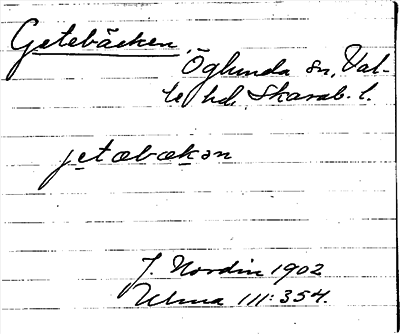 Getebäcken,
Öglunda sn, Val-
le hd. Skarab. l.
jetabækən
J. Nordin 1902
Ulma 111:354.